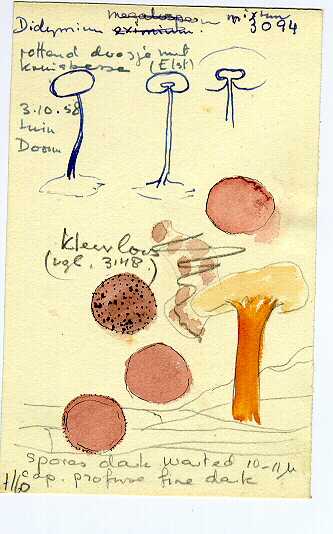 megalosporum mixtum
Didymium eximium 3094
rottend doosje met
kruisbesse (Elst)
3.10.58
tuin
Doorn
kleurloos
(vgl. 3148.)
spores dark warted 10-11 µ
cap. profuse fine dark